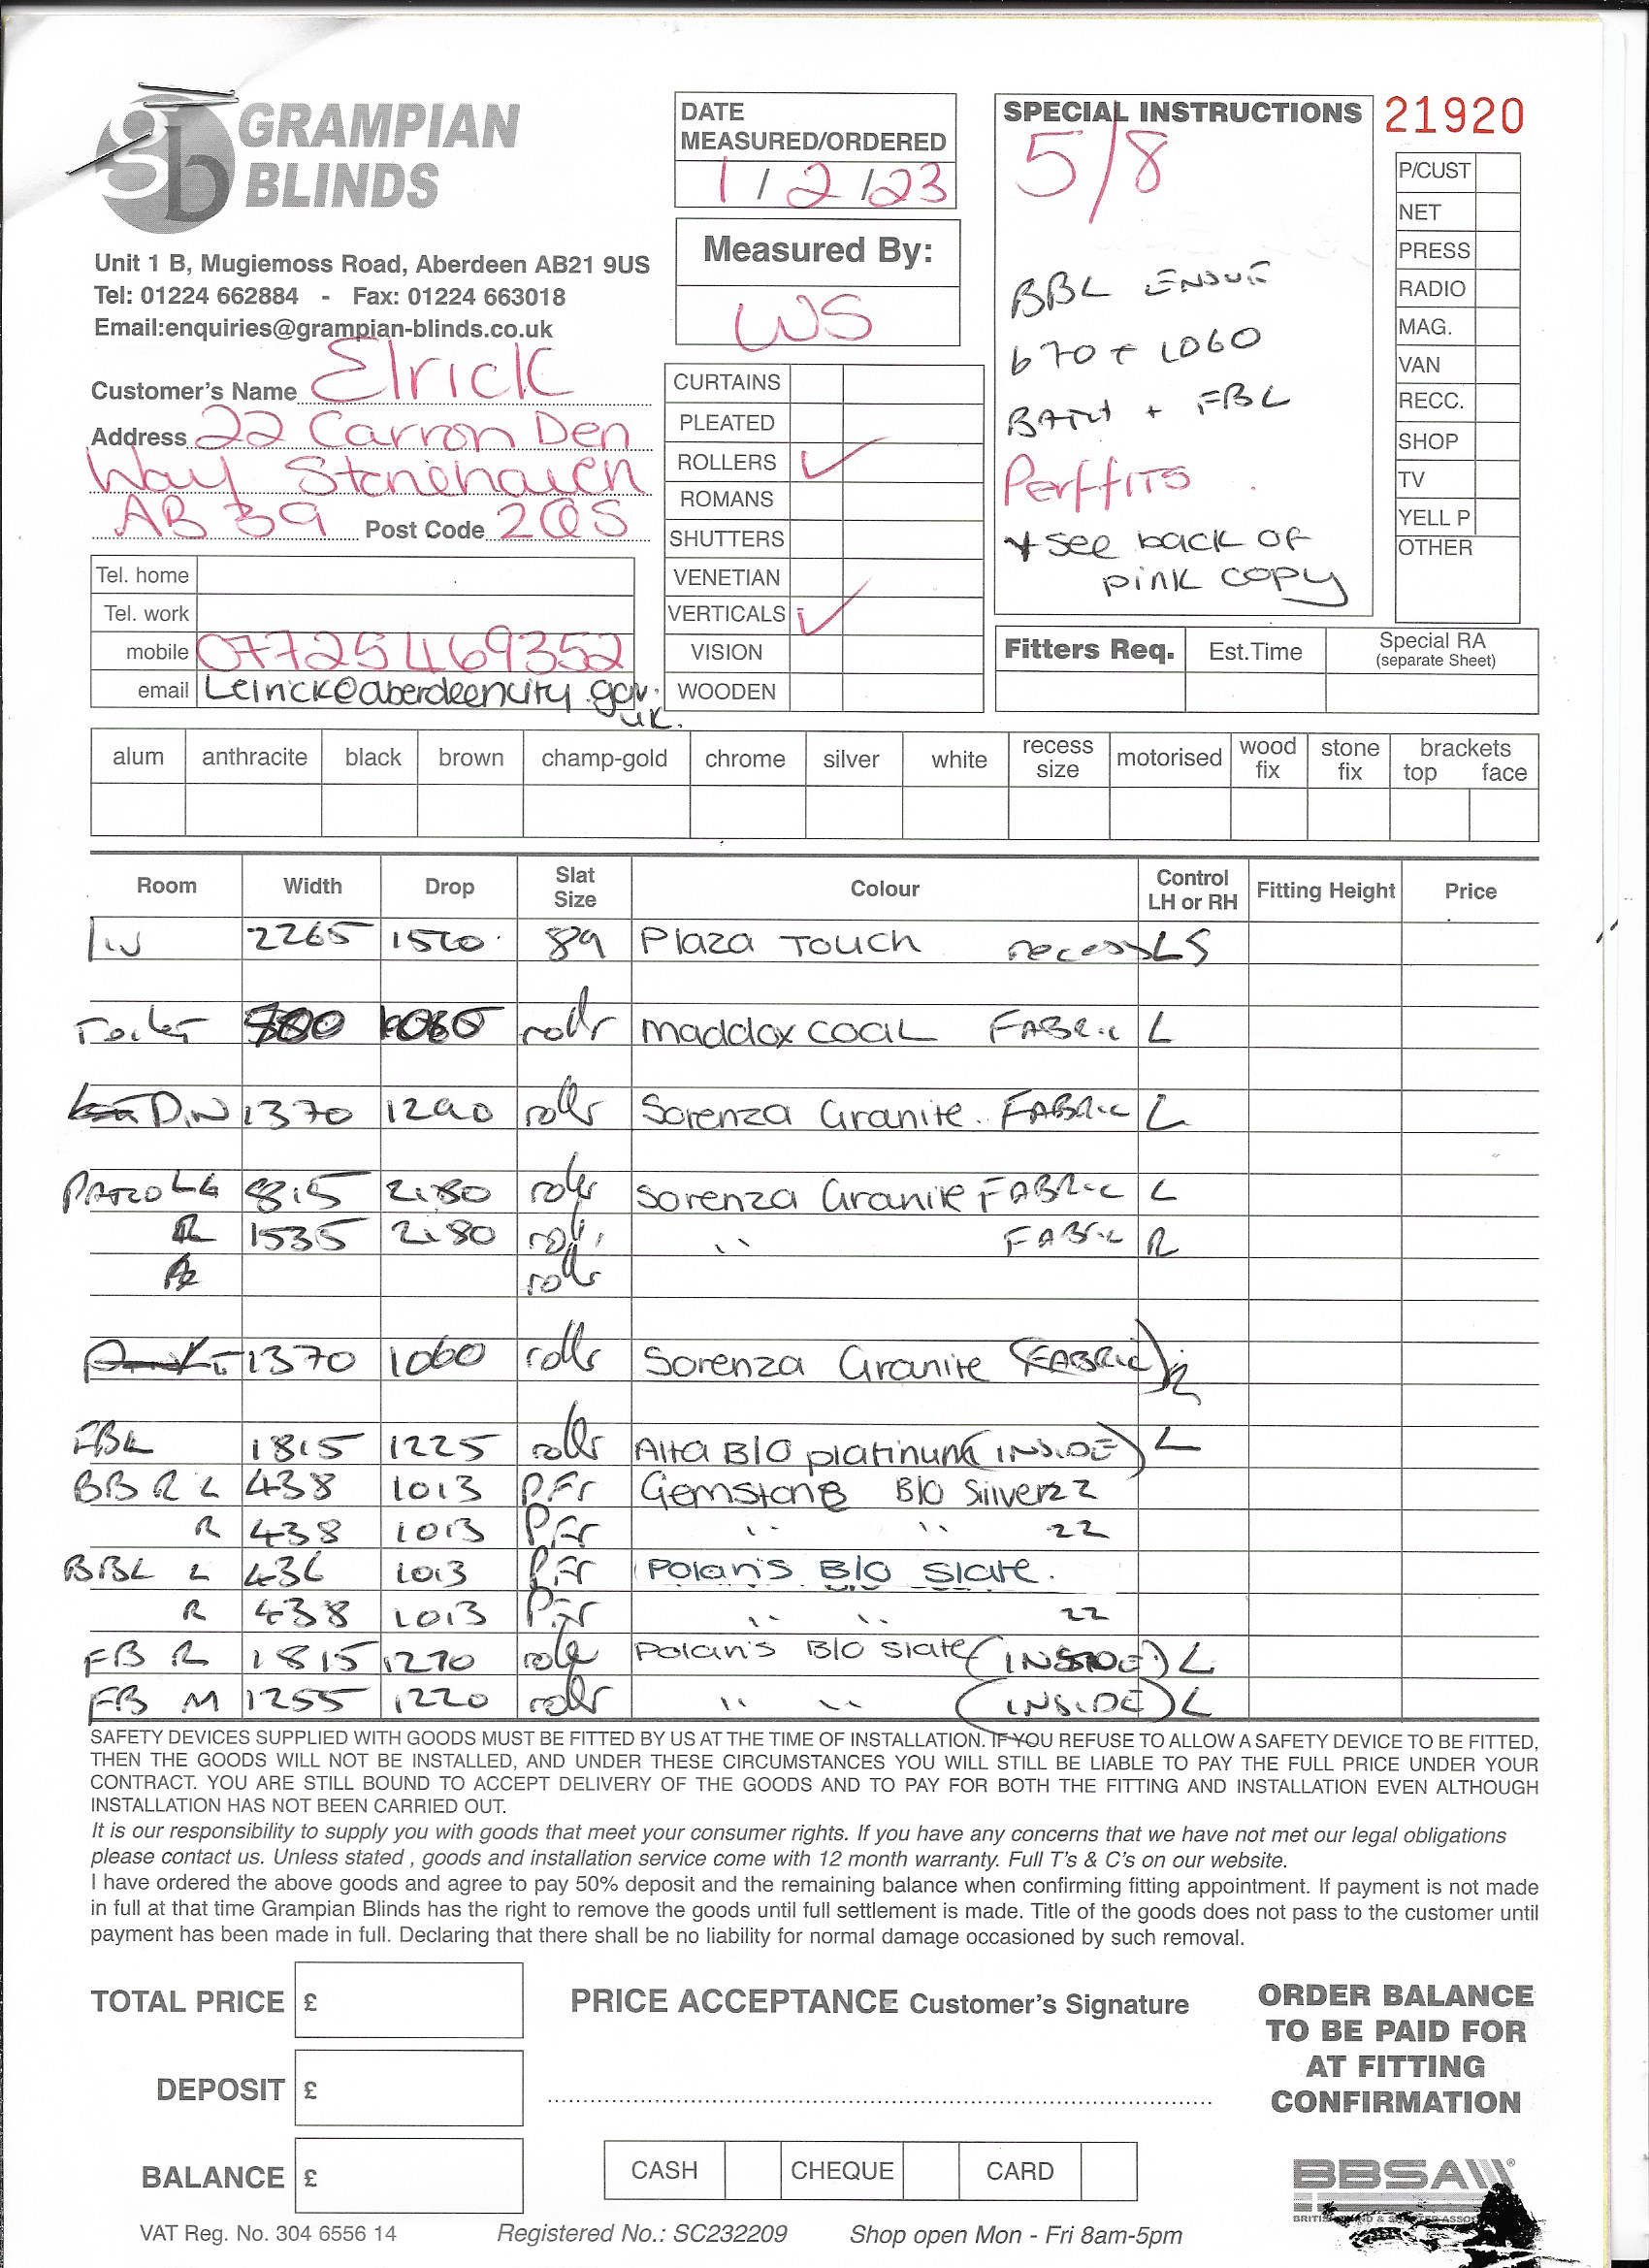 gb GRAMPIAN BLINDS
Unit 1 B, Mugiemoss Road, Aberdeen AB21 9US
Tel: 01224 662884 - Fax: 01224 663018
Email:enquiries@grampian-blinds.co.uk
Customer's Name Elrick
Address 22 Carron Den
Way Stonehaven
AB39 Post Code 2QS
Tel. home
Tel. work
mobile 07725469352
email Lelrick@aberdeencity.gov.
uk.
DATE
MEASURED/ORDERED
1/2/23
Measured By:
WS
CURTAINS
PLEATED
ROLLERS ✓
ROMANS
SHUTTERS
VENETIAN
VERTICALS ✓
VISION
WOODEN
SPECIAL INSTRUCTIONS
5/8
BBL
670 + 1060
BATH + FBL
Perffits
* see back of
pink copy
21920
P/CUST
NET
PRESS
RADIO
MAG.
VAN
RECC.
SHOP
TV
YELL P
OTHER
Fitters Req. Est.Time Special RA
(separate Sheet)
alum anthracite black brown champ-gold chrome silver white recess size motorised wood fix stone fix brackets top face
Room Width Drop Slat Size Colour Control LH or RH Fitting Height Price
2265 1500 89 Plaza Touch recess LS
Toilet rollr maddox coal FABRIC L
DIN 1370 1290 rollr Sorenza Granite. FABRIC L
PATIO 2180 rollr Sorenza Granite FABRIC L
R 1535 2180 rollr " FABRIC R
rollr
1370 1060 rollr Sorenza Granite (FABRIC)
FBL 1815 1225 rollr Alta B/O platinum (INSIDE) L
BB R L 438 1013 PFr Gemstone B/O Silver 22
R 438 1013 PFr " " 22
BBL L 436 1013 PFr Polaris B/O Slate.
R 438 1013 PFr " " 22
FB R 1815 1270 rollr Polaris B/O Slate (INSIDE) L
FB M 1255 1220 rollr " " (INSIDE) L
SAFETY DEVICES SUPPLIED WITH GOODS MUST BE FITTED BY US AT THE TIME OF INSTALLATION. IF YOU REFUSE TO ALLOW A SAFETY DEVICE TO BE FITTED,
THEN THE GOODS WILL NOT BE INSTALLED, AND UNDER THESE CIRCUMSTANCES YOU WILL STILL BE LIABLE TO PAY THE FULL PRICE UNDER YOUR
CONTRACT. YOU ARE STILL BOUND TO ACCEPT DELIVERY OF THE GOODS AND TO PAY FOR BOTH THE FITTING AND INSTALLATION EVEN ALTHOUGH
INSTALLATION HAS NOT BEEN CARRIED OUT.
It is our responsibility to supply you with goods that meet your consumer rights. If you have any concerns that we have not met our legal obligations
please contact us. Unless stated , goods and installation service come with 12 month warranty. Full T's & C's on our website.
I have ordered the above goods and agree to pay 50% deposit and the remaining balance when confirming fitting appointment. If payment is not made
in full at that time Grampian Blinds has the right to remove the goods until full settlement is made. Title of the goods does not pass to the customer until
payment has been made in full. Declaring that there shall be no liability for normal damage occasioned by such removal.
TOTAL PRICE £
DEPOSIT £
BALANCE £
PRICE ACCEPTANCE Customer's Signature
CASH CHEQUE CARD
ORDER BALANCE
TO BE PAID FOR
AT FITTING
CONFIRMATION
BBSA
VAT Reg. No. 304 6556 14 Registered No.: SC232209 Shop open Mon - Fri 8am-5pm